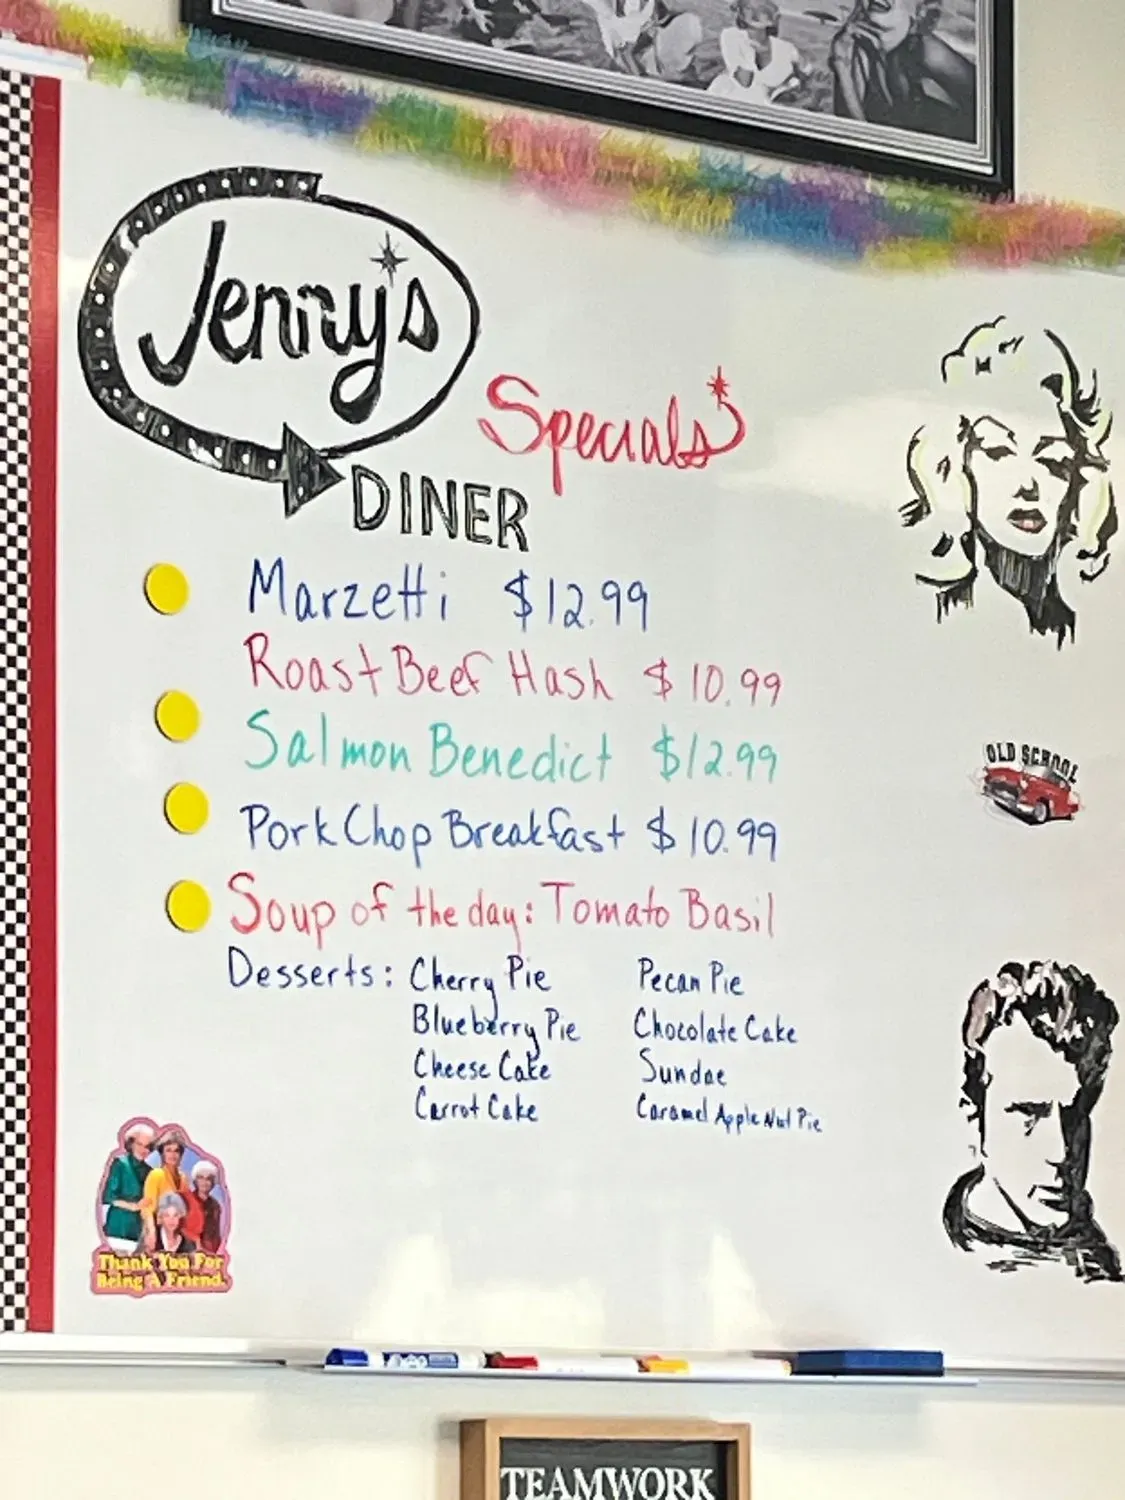 Jenny's
Specials
DINER
Marzetti $12.99
Roast Beef Hash $10.99
Salmon Benedict $12.99
Pork Chop Breakfast $10.99
Soup of the day: Tomato Basil
Desserts: Cherry Pie Pecan Pie
Blueberry Pie Chocolate Cake
Cheese Cake Sundae
Carrot Cake Caramel Apple Nut Pie
OLD SCHOOL
Thank You For
Being A Friend.
EXPO
TEAMWORK